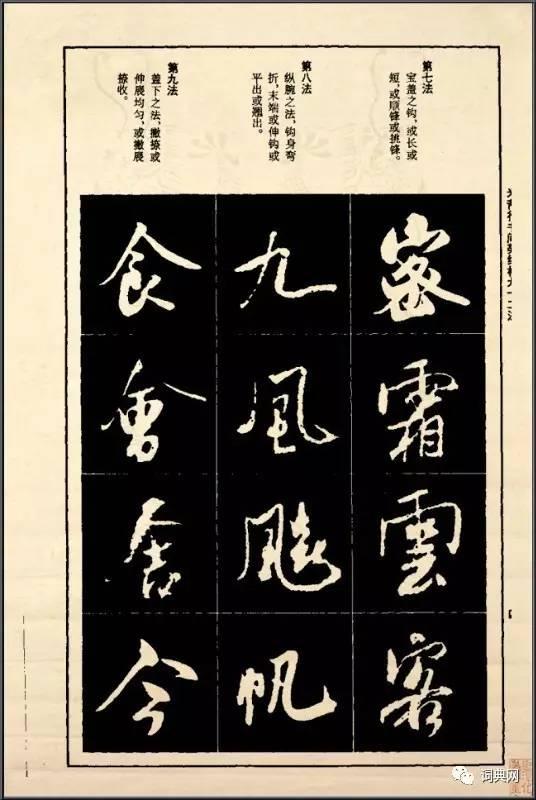 第七法
宝盖之钩，或长或
短，或顺锋或挑锋。
第八法
纵腕之法，钩身弯
折，末端或伸钩或
平出或翘出。
第九法
盖下之法，撇捺或
伸展均匀，或撇展
捺收。
密霜雲客
九風帆
食會舍今
词典网